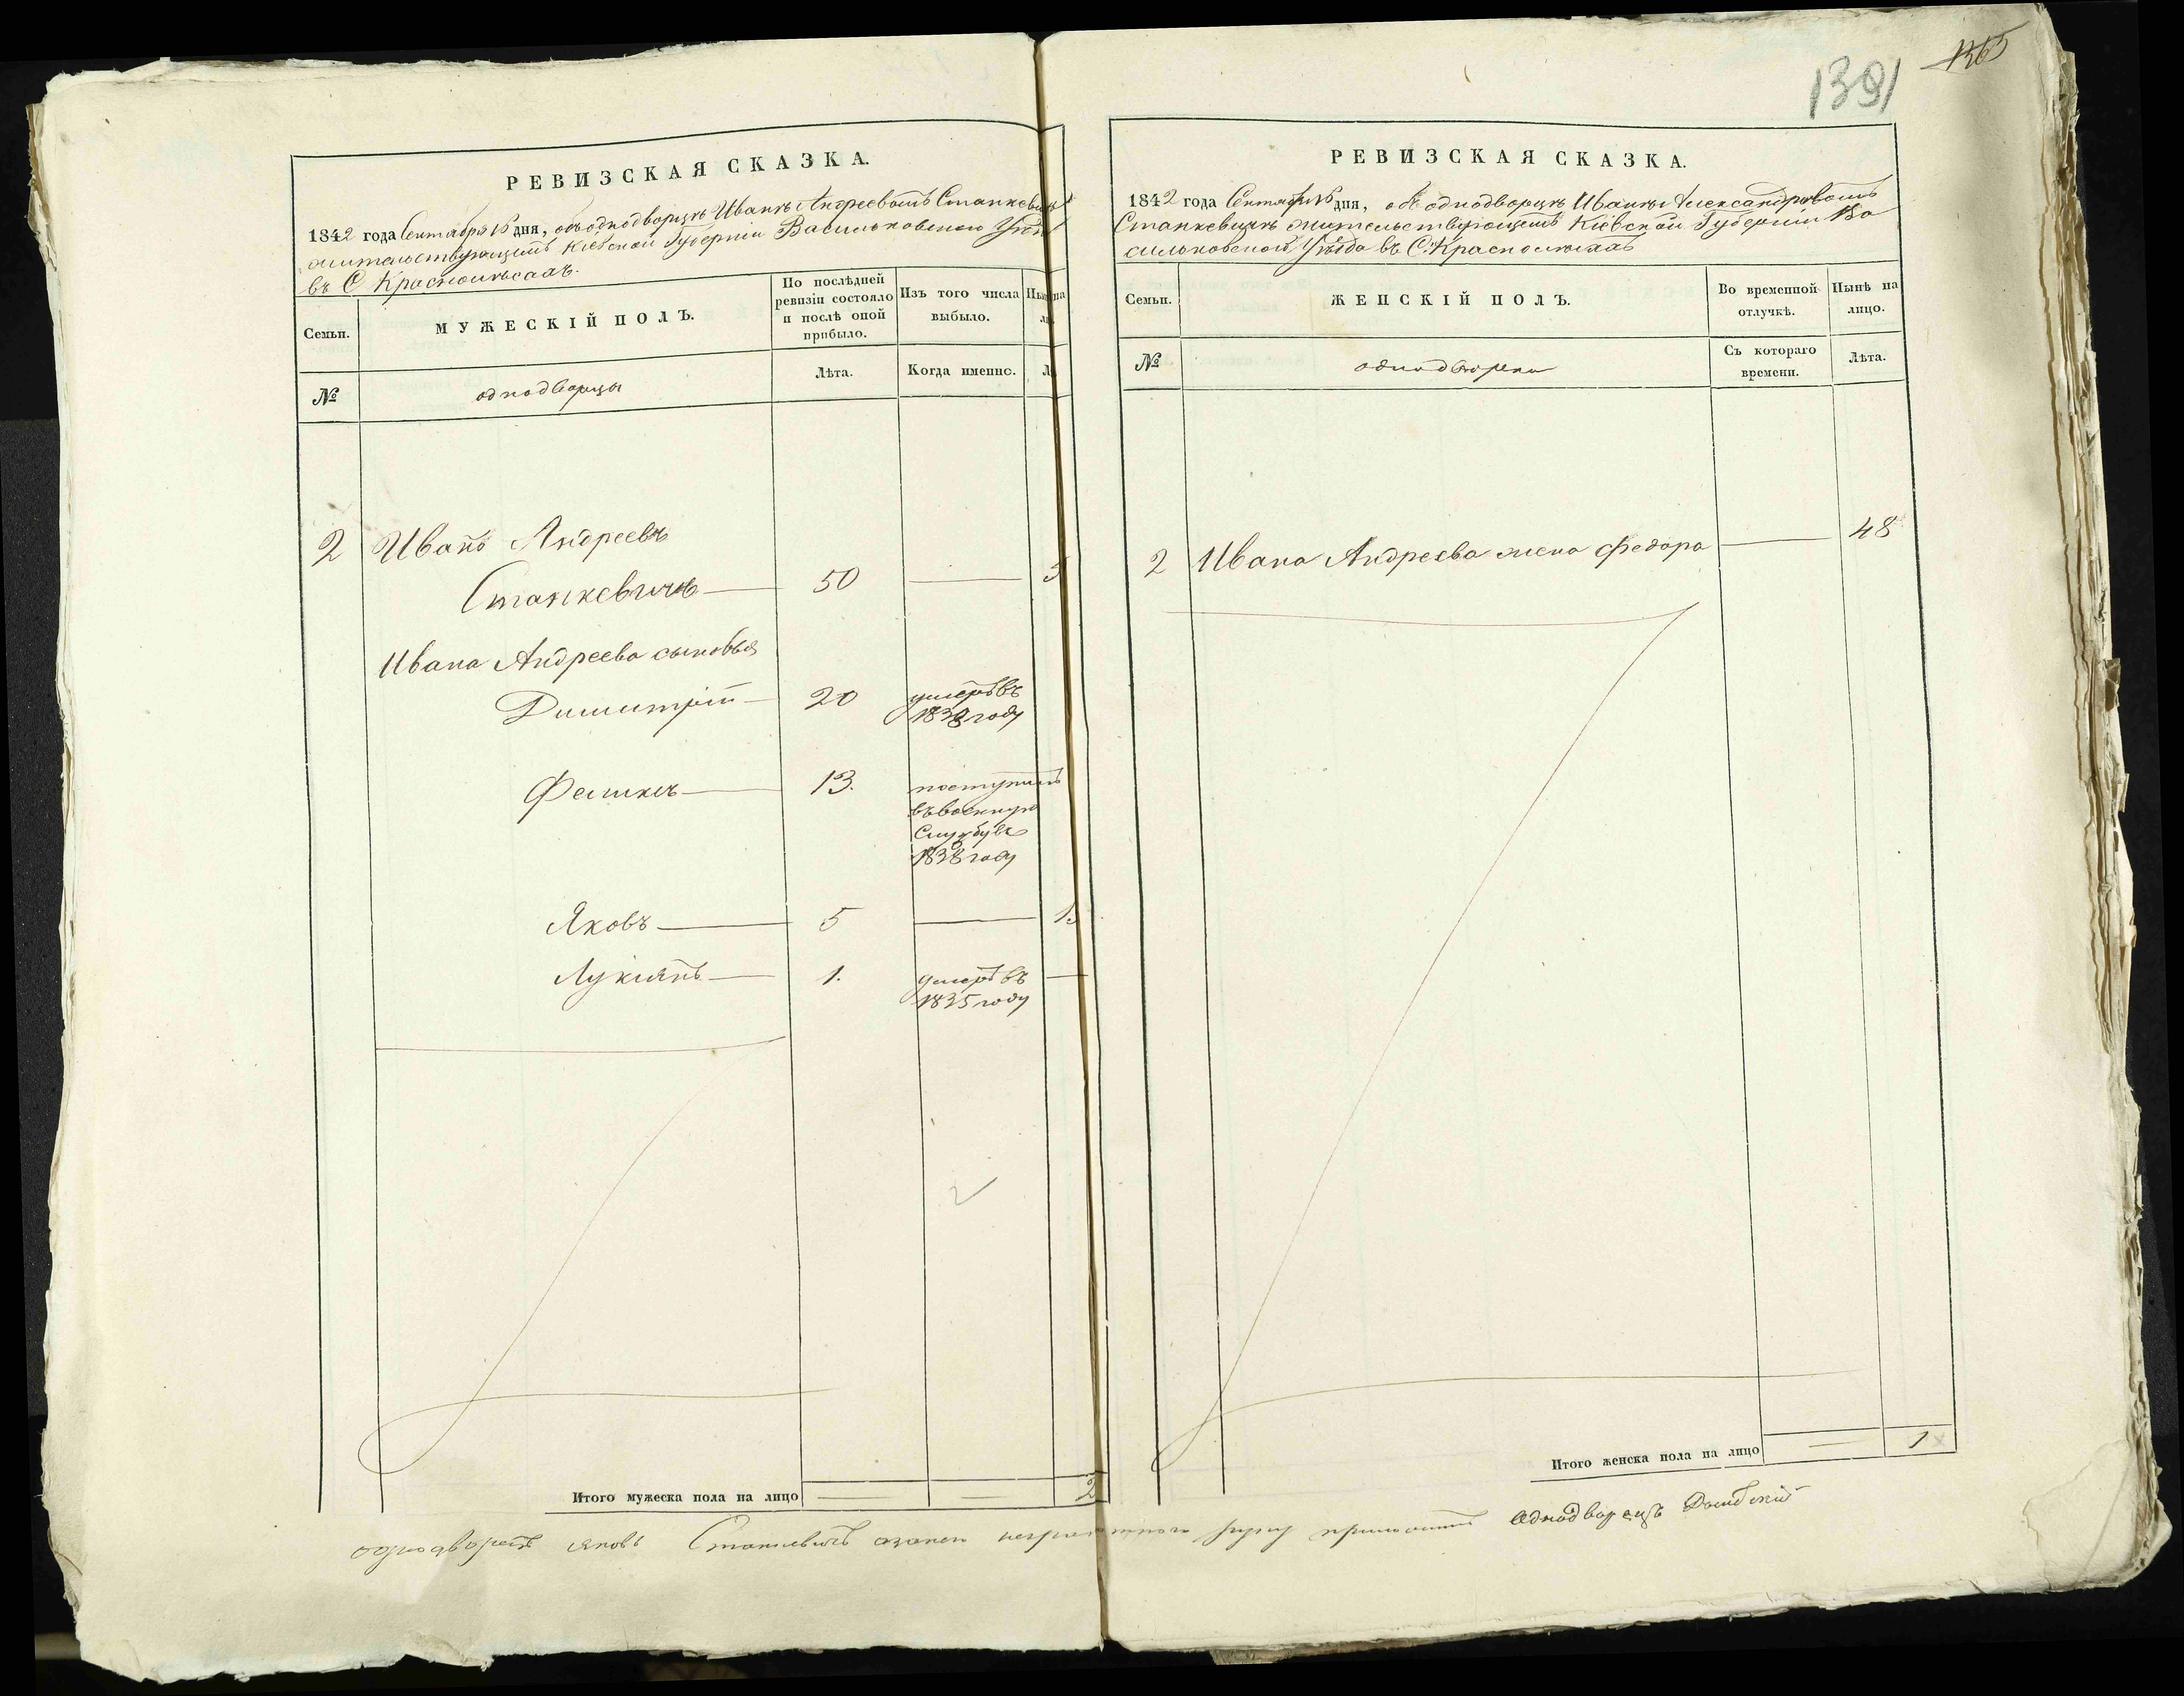 1391
1365
РЕВИЗСКАЯ СКАЗКА.
1842 года Сентября 15 дня, объ однодворцѣ Иванѣ Андреевомъ Станкевичѣ
жительствующемъ Кіевской Губерніи Васильковскаго Уѣзд
въ С Краснолѣсахъ.
Семьи.
МУЖЕСКІЙ ПОЛЪ.
По послѣдней
ревизіи состояло
и послѣ оной
прибыло.
Изъ того числа
выбыло.
№
однодворцы
Лѣта.
Когда именно.
2 Иванъ Андреевъ
Станкевичъ 50
Ивана Андреева сыновья
Димитрій 20 умеръ въ
1838 году
Феликсъ 13. поступилъ
въ военную
Службу въ
1838 году
Яковъ 5
Лукіянъ 1. умеръ въ
1835 году
Итого мужеска пола на лицо 2
РЕВИЗСКАЯ СКАЗКА.
1842 года Сентября 15 дня, объ однодворцѣ Иванѣ Александровомъ
Станкевичѣ жительствующемъ Кіевской Губерніи Ва
сильковскаго Уѣзда въ С. Краснолѣсахъ
Семьи.
ЖЕНСКІЙ ПОЛЪ.
Во временной
отлучкѣ.
Нынѣ на
лицо.
№
однодворки
Съ котораго
времени.
Лѣта.
2 Ивана Андреева жена Федора 48
Итого женска пола на лицо 1
однодворецъ Яковъ Станкевичъ а за него неграмотнаго руку приложилъ Однодворецъ